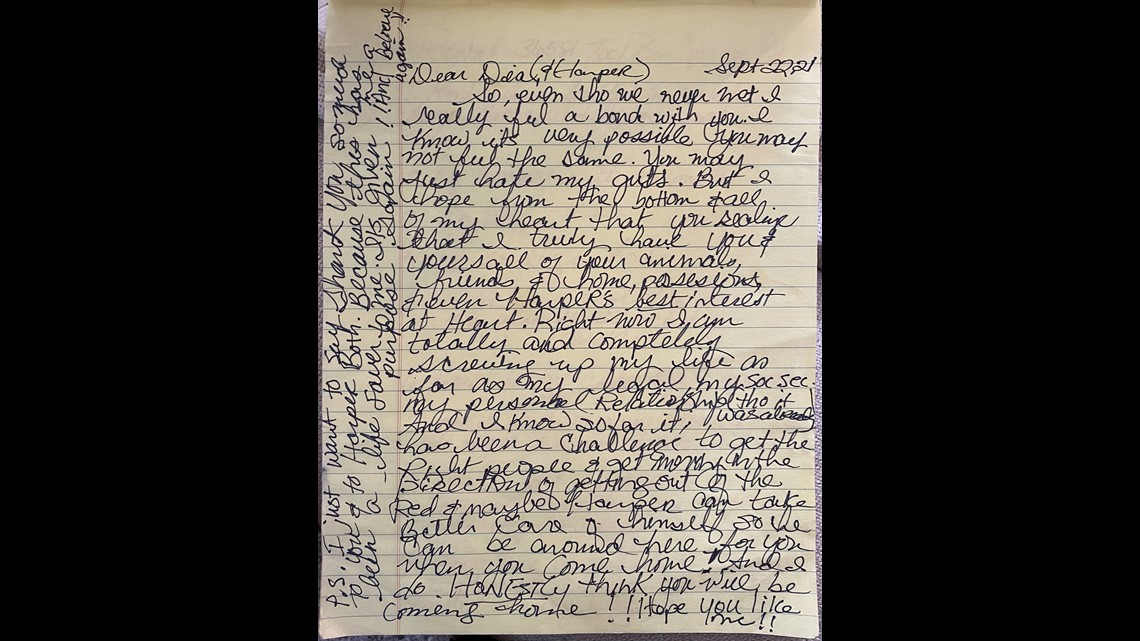 Sept 22, 21
Dear Dea, (& Harper)
So, even tho we never met I
really feel a bond with you. I
know its very possible you may
not feel the same. You may
just hate my guts. But I
hope from the bottom & all
of my heart that you realize
that I truly have you &
yours all of your animals,
friends, & home, possesions,
& even Harper's best interest
at Heart. Right now I am
totally and completely
screwing up my life as
far as my legal, my soc sec.
my personal Relationship (tho it
was already)
And I know so far it,
has been a challenge to get the
right people & get money in the
Direction of getting out of the
Red & maybe Harper can take
Better care of himself so he
can be around here for you
when you come home. And I
do. HONESTLY think you will be
coming home!! Hope you like
me!!
P.S. I just want to say Thank you so much
to you & to Harper Both. Because this has
been a life saver to me. Its given me a
purpose again!! And Believe
again!!